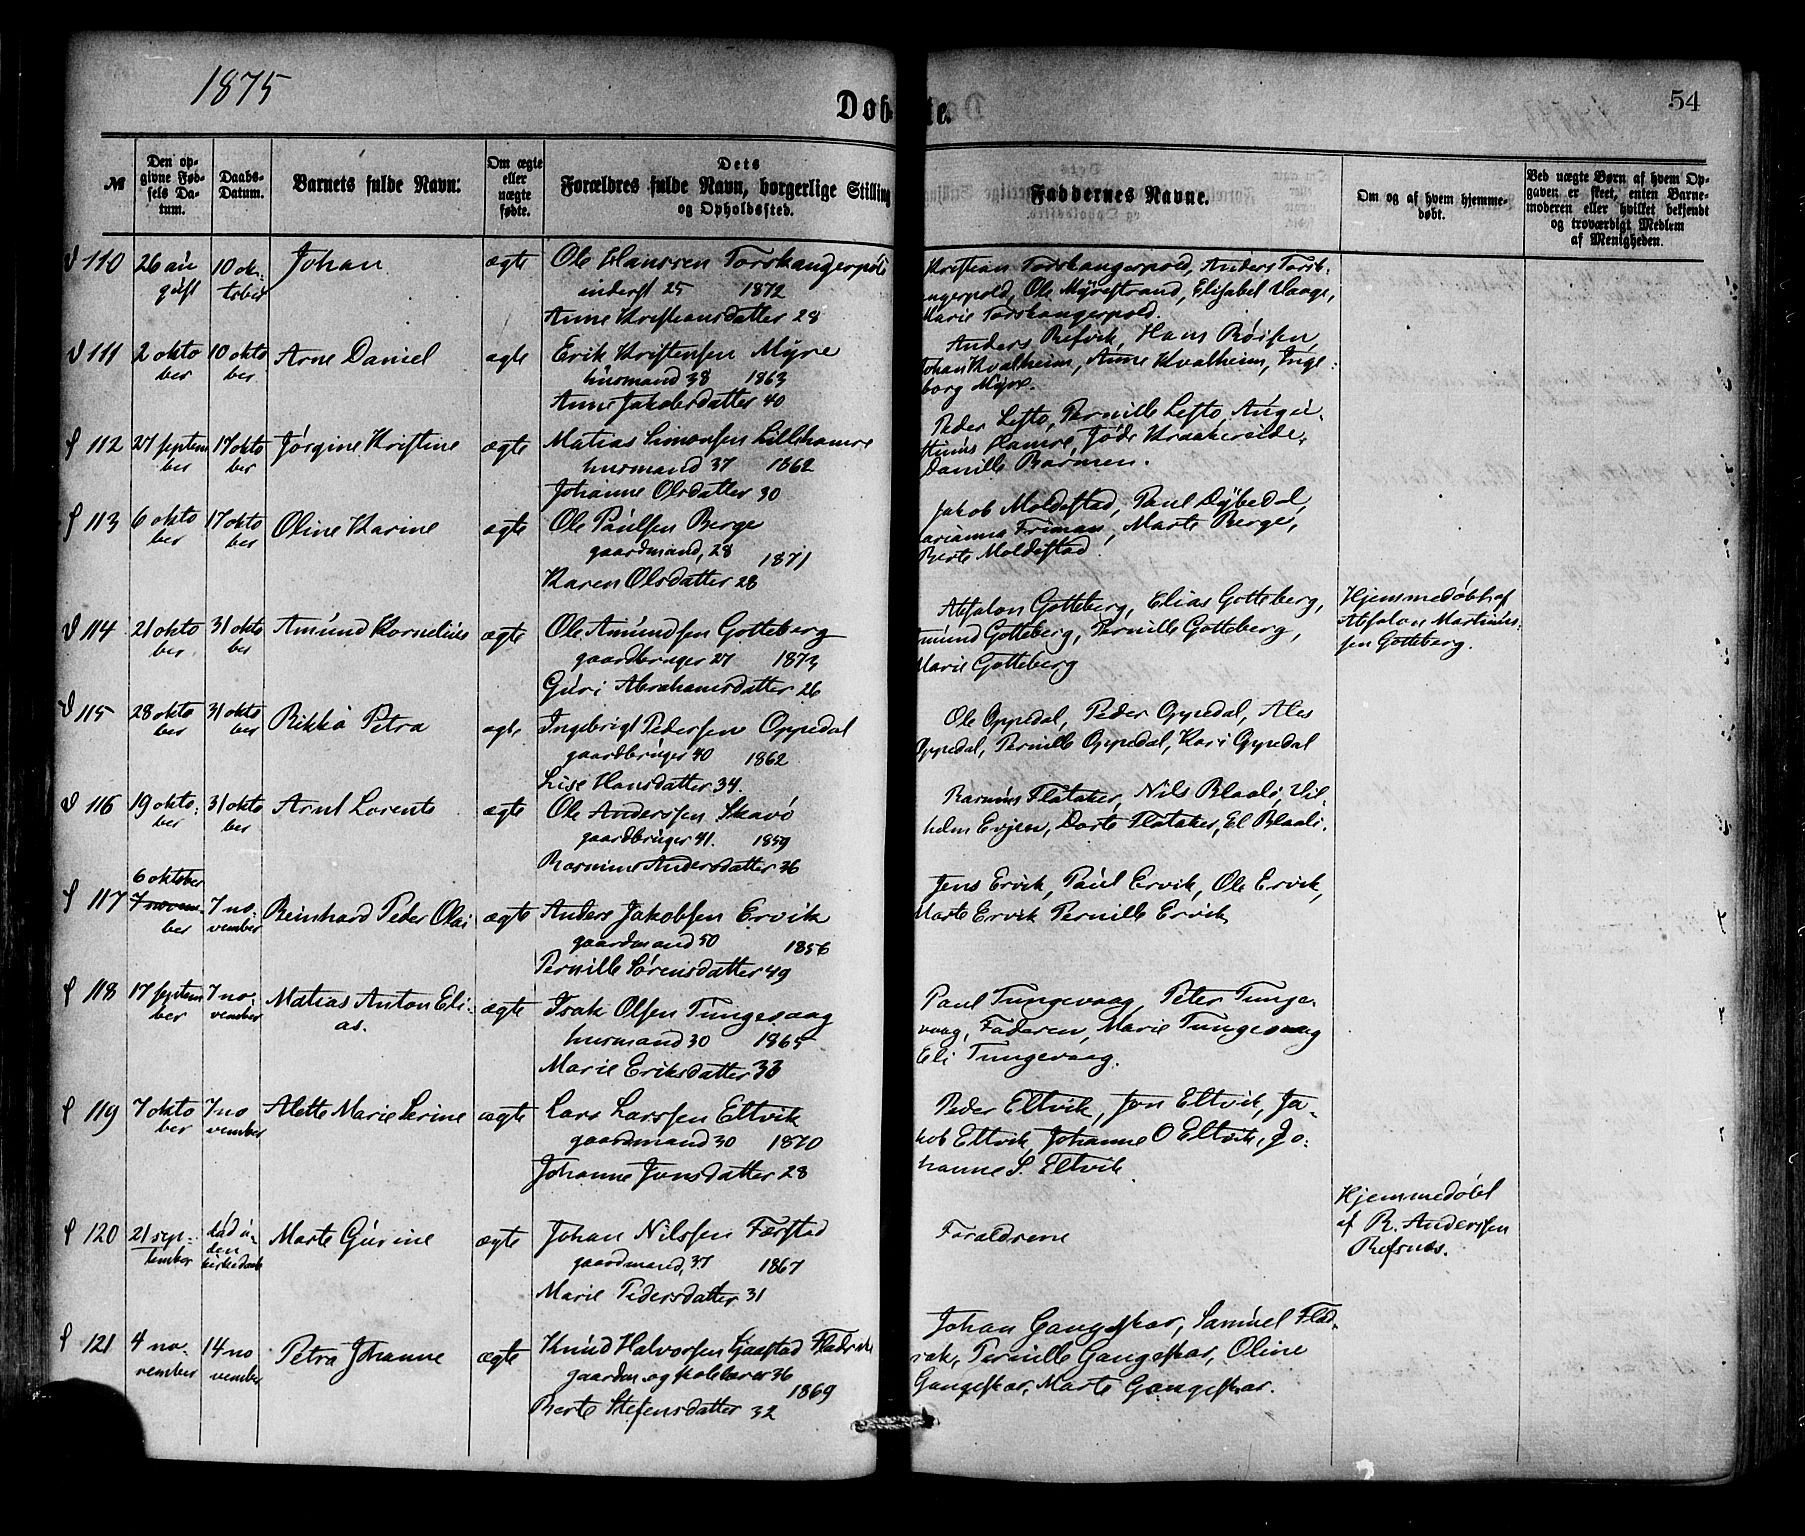 1875
Døbte.
54
№
Den opgivne Fødsels Datum.
Daabs-Datum.
Barnets fulde Navn:
Om ægte eller uægte fødte.
Dets Forældres fulde Navn, borgerlige Stilling og Opholdssted.
Faddernes Navne.
Om og af hvem hjemmedøbt.
Ved uægte Børn af hvem Opgaven er skeet, enten Barnemoderen eller hvilket bekjendt og troværdigt Medlem af Menigheden.
V 110 26 august 10 oktober Johan ægte Ole Hanssen Torskangerpold
inderst 25 1872
Anne Kristiansdatter 28
Kristian Torskangerpold, Anders Torsk-
angerpold, Ole Myrestrand, Elisabet Vaage,
Marie Torskangerpold.
V 111 2 oktober 10 oktober Arne Daniel ægte Erik Kristensen Myre
husmand 38 1863
Anne Jakobsdatter 40
Anders Refvik, Hans Røisen,
Johan Kvalheim, Anne Kvalheim, Inge-
borg Myre.
S 112 27 september 17 oktober Jørgine Kristine ægte Matias Simonsen Lillehamre
husmand 37 1862
Johanne Olsdatter 30
Peder Lefto, Pernille Lefto, Augu-
stinus Hamre, Jøde Kraakereide,
Danille Barmen.
S 113 6 oktober 17 oktober Oline Karine ægte Ole Paulsen Berge
gaardmand, 28 1871
Karen Olsdatter 28
Jakob Moldestad, Paul Dybedal,
Marianna Friman, Marte Berge,
Berte Moldestad.
V 114 21 oktober 31 oktober Amund Kornelius ægte Ole Amundsen Gotteberg
gaardbruger 27 1873
Guri Abrahamsdatter 26
Absalon Gotteberg, Elias Gotteberg,
Amund Gotteberg, Pernille Gotteberg,
Marie Gotteberg
Hjemmedøbt af
Absalon Martinus-
sen Gotteberg.
V 115 28 oktober 31 oktober Rikka Petra ægte Ingebrigt Pedersen Oppedal
gaardbruger 40 1862
Lise Hansdatter 34
Ole Oppedal, Peder Oppedal, Ales
Oppedal, Pernille Oppedal, Kari Oppedal
V 116 19 oktober 31 oktober Arnt Lorents ægte Ole Anderssen Skavø
gaardbruger 41. 1859
Rasmine Andersdatter 36
Rasmus Flataker, Nils Blaali, Vil-
helm Evjen, Dorte Flataker, El Blaali.
S 117 6 oktober 7 november 7 november Reinhard Peder Olai ægte Anders Jakobsen Ervik
gaardmand 50 1856
Pernille Sørensdatter 49
Jens Ervik, Paul Ervik, Ole Ervik,
Marte Ervik Pernille Ervik
S 118 17 september 7 november Matias Anton Eli-
as. ægte Isak Olsen Tungevaag
husmand 30 1865
Marie Eriksdatter 33
Paul Tungevaag, Peter Tunge-
vaag, Faderen, Marie Tungevaag
Eli Tungevaag.
S 119 7 oktober 7 november Alette Marie Serine ægte Lars Larssen Eltvik
gaardmand 30 1870
Johanne Jonsdatter 28
Peder Eltvik, Jon Eltvik, Ja-
kob Eltvik, Johanne O Eltvik, Jo-
hanne S. Eltvik
S 120 21 september død uden kirkedaab Marte Gurine ægte Johan Nilssen Færstad
gaardmand, 37 1867
Marie Pedersdatter 31
Forældrene
Hjemmedøbt
af R. Anderssen
Refsnæs.
S 121 4 november 14 november Petra Johanne ægte Knud Halvorsen Gaastad Fladevik
gaardm. og skolelærer 36 1869
Berte Stefensdatter 32
Johan Gangeskar, Samuel Flad-
evik, Pernille Gangeskar, Oline
Gangeskar, Marte Gangeskar.